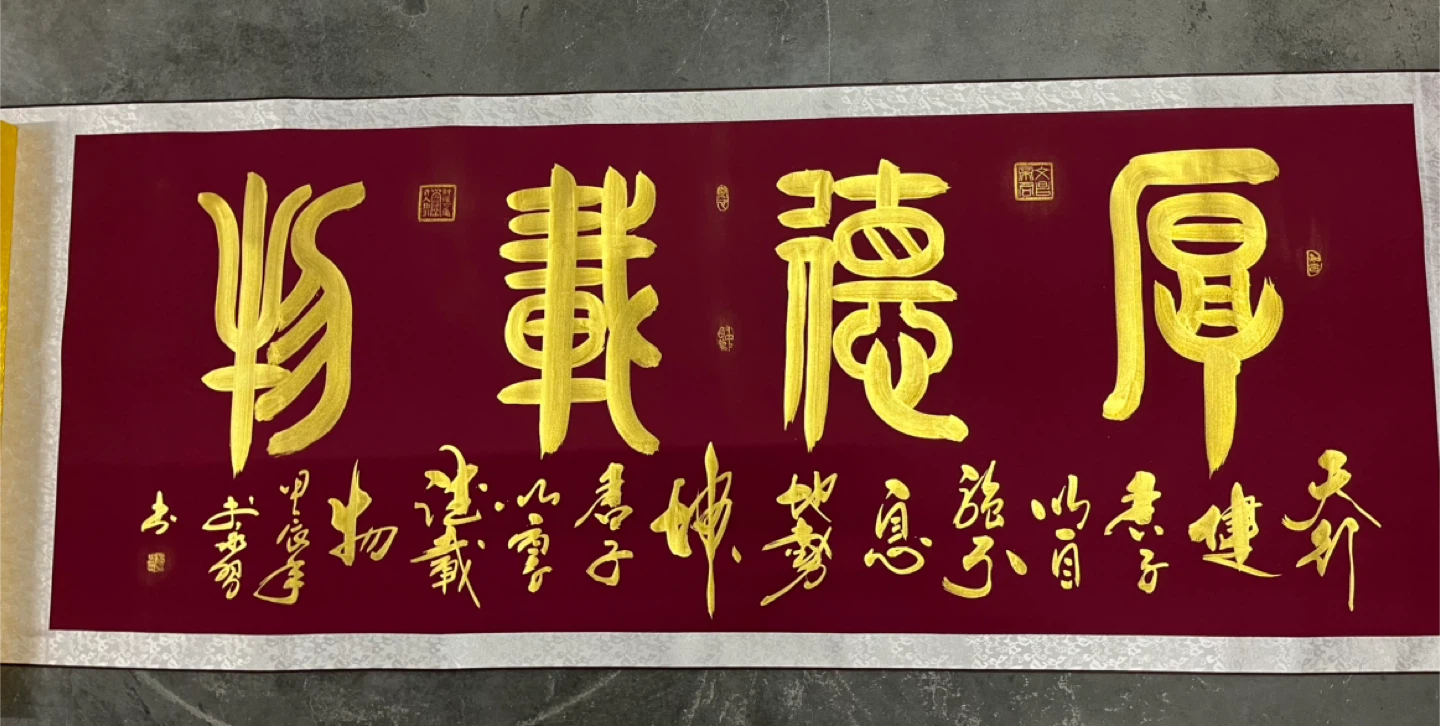 厚德載物
天行
健
君子
以自
強不
息
地勢
坤
君子
以厚
德載
物
甲辰年
书